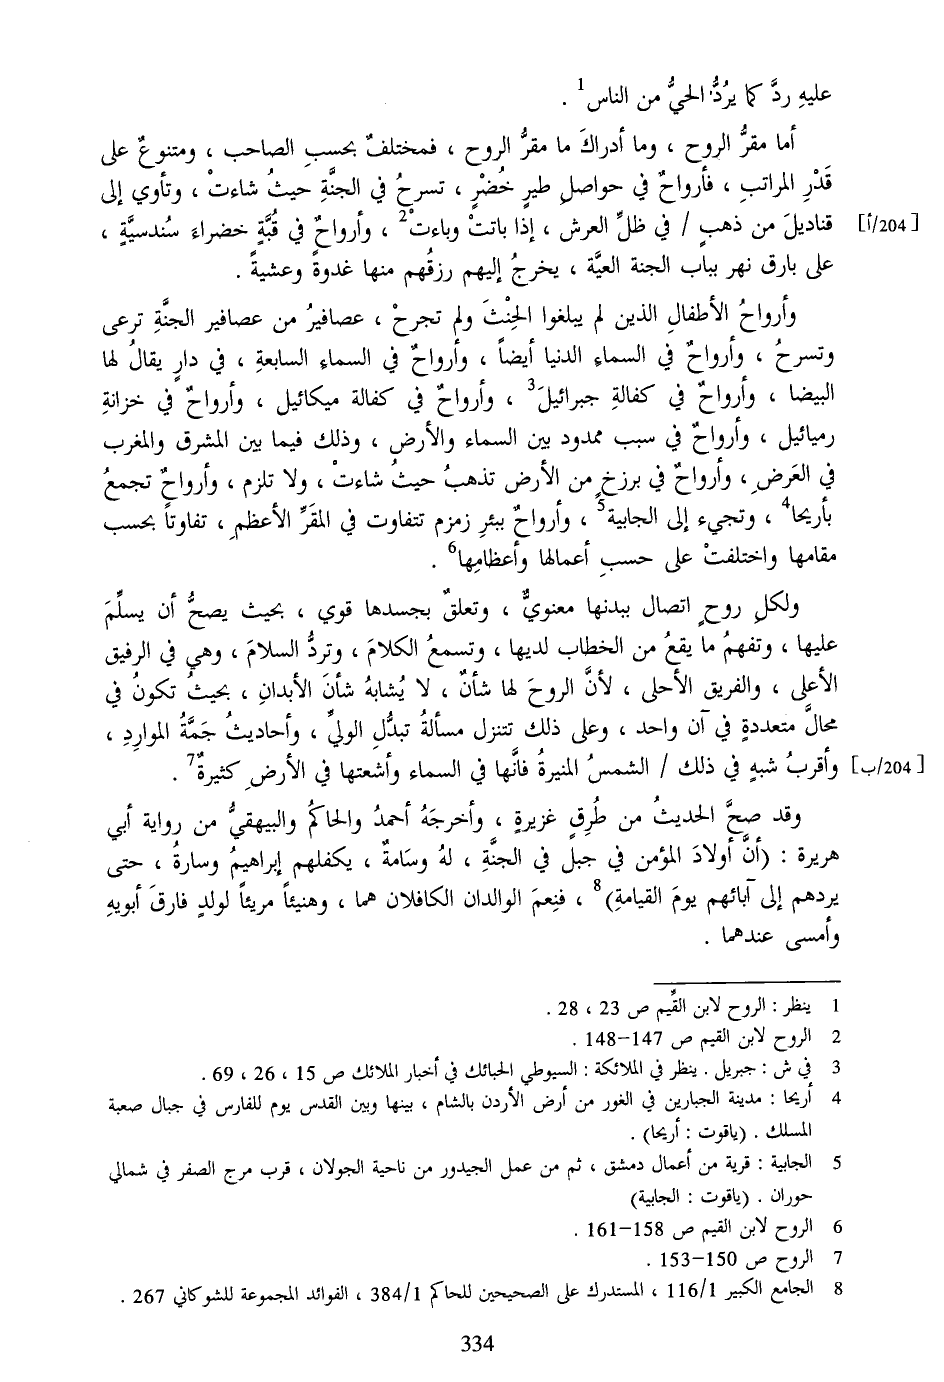 عليهِ ردَّ كما يرُدُّ الحيُّ من الناس1 .
أما مقرُّ الروح ، وما أدراكَ ما مقرُّ الروح ، فمختلفٌ بحسبِ الصاحب ، ومتنوعٌ على
قَدْرِ المراتبِ ، فأرواحٌ في حواصلِ طيرٍ خُضْرٍ ، تسرحُ في الجنَّةِ حيثُ شاءتْ ، وتأوي إلى
[204/أ] قناديلَ من ذهبٍ / في ظلِّ العرش ، إذا باتتْ وباءتْ2 ، وأرواحٌ في قُبَّةٍ خضراءَ سُندسيَّةٍ ،
على بارق نهر بباب الجنة العيَّة ، يخرجُ إليهم رزقُهم منها غدوةً وعشيةً .
وأرواحُ الأطفالِ الذين لم يبلغوا الحِنْثَ ولم تجرحْ ، عصافيرُ من عصافير الجنَّةِ ترعى
وتسرحُ ، وأرواحٌ في السماءِ الدنيا أيضاً ، وأرواحٌ في السماءِ السابعةِ ، في دارٍ يقالُ لها
البيضا ، وأرواحٌ في كفالةِ جبرائيلَ3 ، وأرواحٌ في كفالة ميكائيل ، وأرواحٌ في خزانةِ
رميائيل ، وأرواحٌ في سبب ممدود بين السماء والأرض ، وذلك فيما بين المشرق والمغرب
في العَرضِ ، وأرواحٌ في برزخٍ من الأرض تذهبُ حيثُ شاءتْ ، ولا تلزم ، وأرواحٌ تجمعُ
بأريحا4 ، وتجيء إلى الجابية5 ، وأرواحٌ ببئرِ زمزم تتفاوت في المقَرِّ الأعظمِ ، تفاوتاً بحسب
مقامها واختلفتْ على حسبِ أعمالها وأعظامِها6 .
ولكلِ روحٍ اتصال ببدنها معنويٌّ ، وتعلقٌ بجسدها قوي ، بحيث يصحُّ أن يسلِّمَ
عليها ، وتفهمُ ما يقعُ من الخطاب لديها ، وتسمعُ الكلامَ ، وتردُّ السلامَ ، وهي في الرفيق
الأعلى ، والفريق الأحلى ، لأنَّ الروحَ لها شأنٌ ، لا يُشابهُ شأنَ الأبدانِ ، بحيثُ تكونُ في
محالَّ متعددةٍ في آن واحد ، وعلى ذلك تتنزل مسألةُ تبدُّلِ الوليِّ ، وأحاديثُ جَمَّةُ المواردِ ،
[204/ب] وأقربُ شبهٍ في ذلك / الشمسُ المنيرةُ فانَّها في السماء وأشعتها في الأرضِ كثيرةٌ7 .
وقد صحَّ الحديثُ من طُرقٍ غزيرةٍ ، وأخرجَهُ أحمدُ والحاكمُ والبيهقيُّ من رواية أبي
هريرة : (أنَّ أولادَ المؤمن في جبل في الجنَّةِ ، لهُ وسَامةٌ ، يكفلهم إبراهيمُ وسارةُ ، حتى
يردهم إلى آبائهم يومَ القيامةِ)8 ، فنِعمَ الوالدان الكافلان هما ، وهنيئاً مريئاً لولدٍ فارقَ أبويهِ
وأمسى عندهما .
1 ينظر : الروح لابن القَيِّم ص 23 ، 28 .
2 الروح لابن القيم ص 147–148 .
3 في ش : جبريل . ينظر في الملائكة : السيوطي الحبائك في أخبار الملائك ص 15 ، 26 ، 69 .
4 أريحا : مدينة الجبارين في الغور من أرض الأردن بالشام ، بينها وبين القدس يوم للفارس في جبال صعبة
المسلك . (ياقوت : أريحا) .
5 الجابية : قرية من أعمال دمشق ، ثم من عمل الجيدور من ناحية الجولان ، قرب مرج الصفر في شمالي
حوران . (ياقوت : الجابية)
6 الروح لابن القيم ص 158–161 .
7 الروح ص 150–153 .
8 الجامع الكبير 116/1 ، المستدرك على الصحيحين للحاكم 384/1 ، الفوائد المجموعة للشوكاني 267 .
334